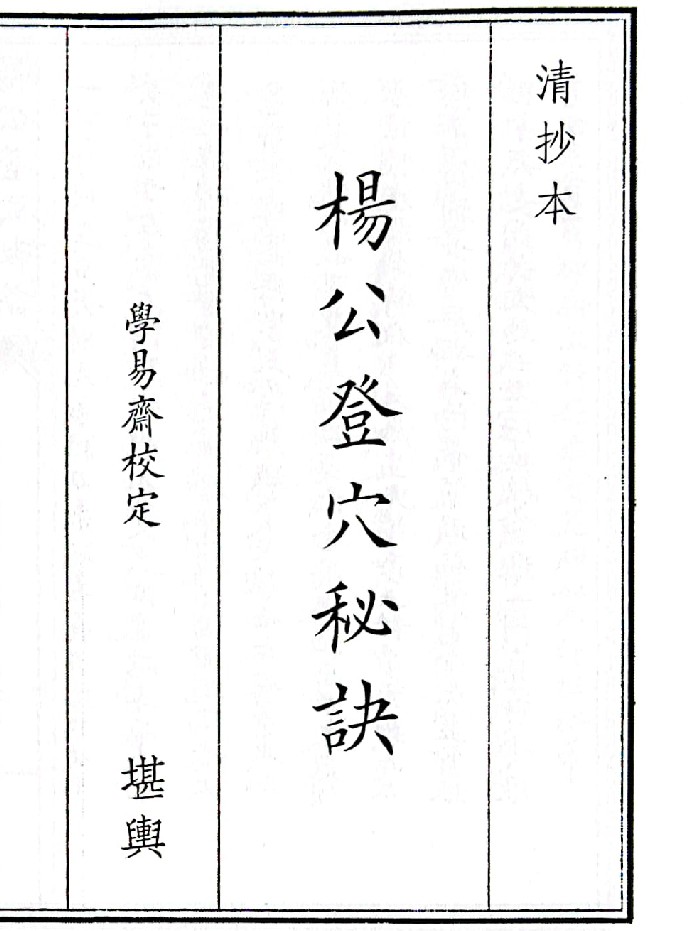 清抄本
楊公登穴秘訣
學易齋校定
堪輿